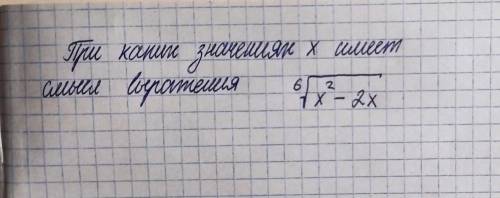 При каких значениях x имеет
смысл выражения ⁶√(x² - 2x)